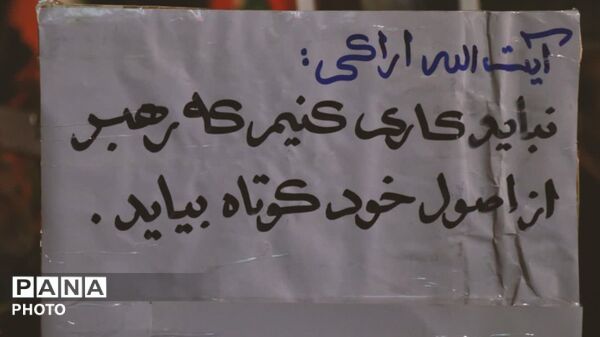 آیت الله اراکی:
نباید کاری کنیم که رهبر
از اصول خود کوتاه بیاید.
PANA
PHOTO